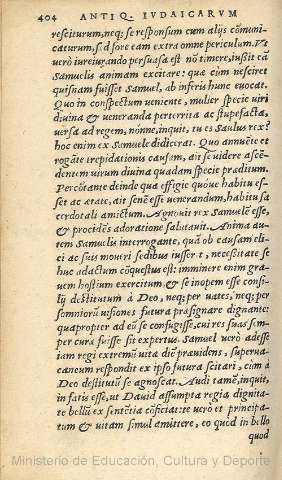 404 ANTIQ. IVDAICARVM
resciturum, neq; se responsum cum alijs cōmuni-
caturum, sed fore eam extra omne periculum. Vt
verò iureiurando persuasa est nō timere, iußit eā
Samuelis animam excitare: quæ cùm nesciret
quisnam fuisset Samuel, ab inferis hunc euocat.
Quo in conspectum veniente, mulier specie viri
diuina & veneranda perterrita ac stupefacta,
versa ad regem, nonne, inquit, tu es Saulus rex?
hoc enim ex Samuele didicerat. Quo annuēte et
rogāte trepidationis causam, ait se videre ascē-
dentem virum diuina quadam specie præditum.
Percōtante deinde qua effigie quóue habitu es-
set ac ætate, ait senē esse venerandum, habitu sa
cerdotali amictum. Agnouit rex Samuelē esse,
& procidēs adoratione salutauit. Anima au-
tem Samuelis interrogante, quā ob causam eli-
ci ac suis moueri sedibus iussert, necessitate se
huc adactum cōquestus est: imminere enim gra-
uem hostium exercitum, & se inopem esse consi-
lij destitutum à Deo, neq; per vates, neq; per
somniorū visiones futura præsignare dignante:
quapropter ad eū se confugisse, cui res suas sem-
per curæ fuisse sit expertus. Samuel verò adesse
iam regi extremū vitæ diē præuidens, superua-
caneum respondit ex ipso futura scitari, cùm à
Deo destitutū se agnoscat. Audi tamē, inquit,
in fatis esse, ut Dauid assumpta regia dignita-
te bellū ex sentētia cōficiat: te verò et principa-
tum & vitam simul amittere, eo quòd in bello
quod
Ministerio de Educación, Cultura y Deporte